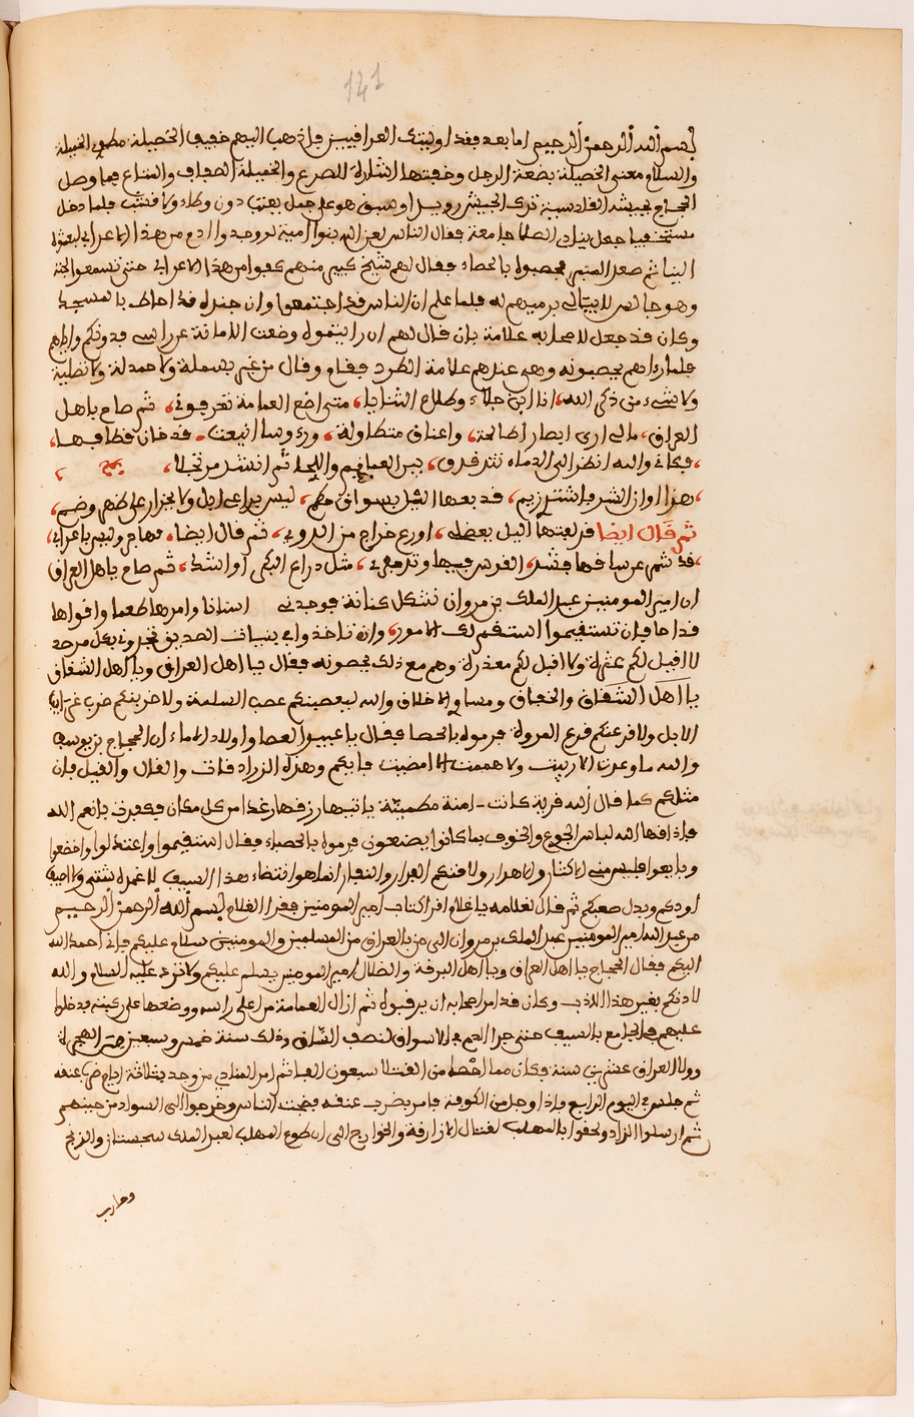 141
بسم الله الرحمن الرحيم اما بعد فقد اوليتك العراقيين فاذهب اليهم خفيف الخصيلة مطوي الخميلة
والسلام معنى الخصيلة بضعة الرجل وخفتها اشارة للصرع والخميلة الصحاف والمتاع فلما وصل
الحجاج بجيشه القادسية ترك الجيش رويدا وسبق هو على جمل بقتب دون وطاء ولا فلما دخل
جعل ينادي الصلاة جامعة فقال الناس لعن الله بنوا امية لم يجدوا ادع من هذا الاعرابي
الينا ثم صعد المنبر فحصبوه بالحصاء فقال لهم شيخ كبير منهم كفوا من هذا الاعرابي حتى نسمع
وهو جالس لا يبالي برميهم له فلما علم ان الناس قد اجتمعوا وان جنده قد احاط بالمسجد
وكان قد جعل لاصحابه علامة بان قال لهم ان رايتموه وضعت الامامة عن راسي فدونكم واياهم
فلما رءاهم يحصبونه وهي عندهم علامة الطرد فقام وقال من غير بسملة ولا حمدلة ولا تصلية
ولا شيء من ذكر الله، انا ابن جلاء وطلاع الثنايا، متى اضع العمامة تعرفوني، ثم صاح ياهل
العراق، مالي ارى ابصارا طامحة، واعناق متطاولة، ورءوسا اينعت، قد حان قطافها،
فكاني والله انظر الى الدماء تترقرق، بين العمايم واللحا ثم انشد مرتجلا،
هذا اوان الشد فاشتد زيم، قد لفها الليل بسواق حطم، ليس براعي ابل ولا بجزار على ظهر وضم،
ثم قال ايضا قد لفها اليل بعصلبي، اورع خراج من الدوي، ثم قال ايضا، مهاجر وليس باعرابي،
قد شمرت عن ساقها فشدوا، القوس فيها وتر عرد، مثل ذراع البكر او اشد، ثم صاح ياهل العراق
ان امير المومنين عبد الملك بن مروان نثل كنانة فوجدني اسنانا وامرها طعما واقواها
قداحا فان تستقيموا استقم لك الامور، وان تاخذوا بي بنيات الطريق تجدوني بكل مرصد
لا اقيل لكم عثرة ولا اقبل لكم معذرة وهم مع ذلك يحصونه فقال يا اهل العراق ويا اهل الشقاق
يا اهل الشقاق والنفاق ومساوي الاخلاق والله لاعصبنكم عصب السلمة ولاضربنكم ضرب غرايب
الابل ولاقرعنكم قرع المروة فرموه بالحصا فقال يا عبيد العصا واولاد الاماء ان الحجاج بن يوسف
والله ما وعدت الا وفيت ولا هممت الا امضيت فاياكم وهذه الزرافات والقال والقيل فان
مثلكم كما قال الله قرية كانت ءامنة مطمينة ياتيها رزقها رغدا من كل مكان فكفرت بانعم الله
فاذاقها الله لباس الجوع والخوف بما كانوا يصنعون فرموه بالحصاء فقال استقيموا واعتدلوا واخضعوا
وبايعوا فليس مني الاكثار والاهدار ولا منكم الفرار والنفار انما هو انتضاء هذا السيف لا غمده شتى ولا صيف
اودكم ويذل صعبكم ثم قال لغلامه يا غلام اقرا كتاب امير المومنين فقرا الغلام بسم الله الرحمن الرحيم
من عبد الله امير المومنين عبد الملك بن مروان الى من بالعراق من المسلمين والمومنين سلام عليكم فاني احمد الله
اليكم فقال الحجاج يا اهل العراق ويا اهل الفرقة والضلال امير المومنين يسلم عليكم ولا تردون عليه السلام والله
لادبنكم بغير هذا الادب وكان قد امر اصحابه ان يرقبوه ثم ازال العمامة من اعلى راسه ووضعها على ركبته فدخلوا
عليهم في الجامع بالسيف حتى جرا الدم في الاسواق لنصف الساق وذلك سنة خمس وسبعين من الهجرة
وولا العراق عشرين سنة فكان مما احصا من القتلا سبعون الفا ثم امر المنادي من وجد بثلاثة ايام ضرب عنقه
ثم جلس في اليوم الرابع فاذا رجل من الكوفة فامر بضرب عنقه فبهت الناس وخرجوا الى السواد من حينهم
ثم ارسلوا الزاد ولحقوا بالمهلب لقتال الازارقة والخوارج الى ان طوع المهلب لعبد الملك سجستان والزنج
وحارب